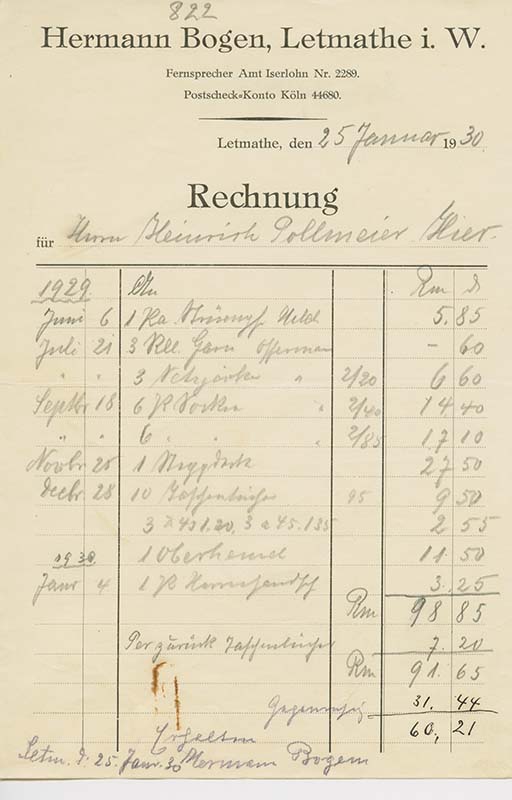 822
Hermann Bogen, Letmathe i. W.
Fernsprecher Amt Iserlohn Nr. 2289.
Postscheck-Konto Köln 44680.
Letmathe, den 25 Januar 1930
Rechnung
für Herrn Heinrich Pollmeier Hier.
1929 An Rm d
Juni 6 1 5. 85
Juli 21 3 Rll. Garn Offermann - 60
" " 3 Netzjacken " 2/20 6 60
Septbr 18 6 P Socken " 2/40 14 40
" " 6 " " " 2/85 17 10
Novbr 25 1 Steppdeck 27 50
Decbr 28 10 Taschentücher 95 9 50
3 a 45 1.20, 3 a 45. 135 2 55
1930 1 Oberhemd 11. 50
Janr 4 1 P Herrenhandsch 3. 25
Rm 98 85
Per zurück Taschentücher 7. 20
Rm 91. 65
31. 44
60, 21
Erhalten
Letm. d. 25. Janr. 30 Hermann Bogen